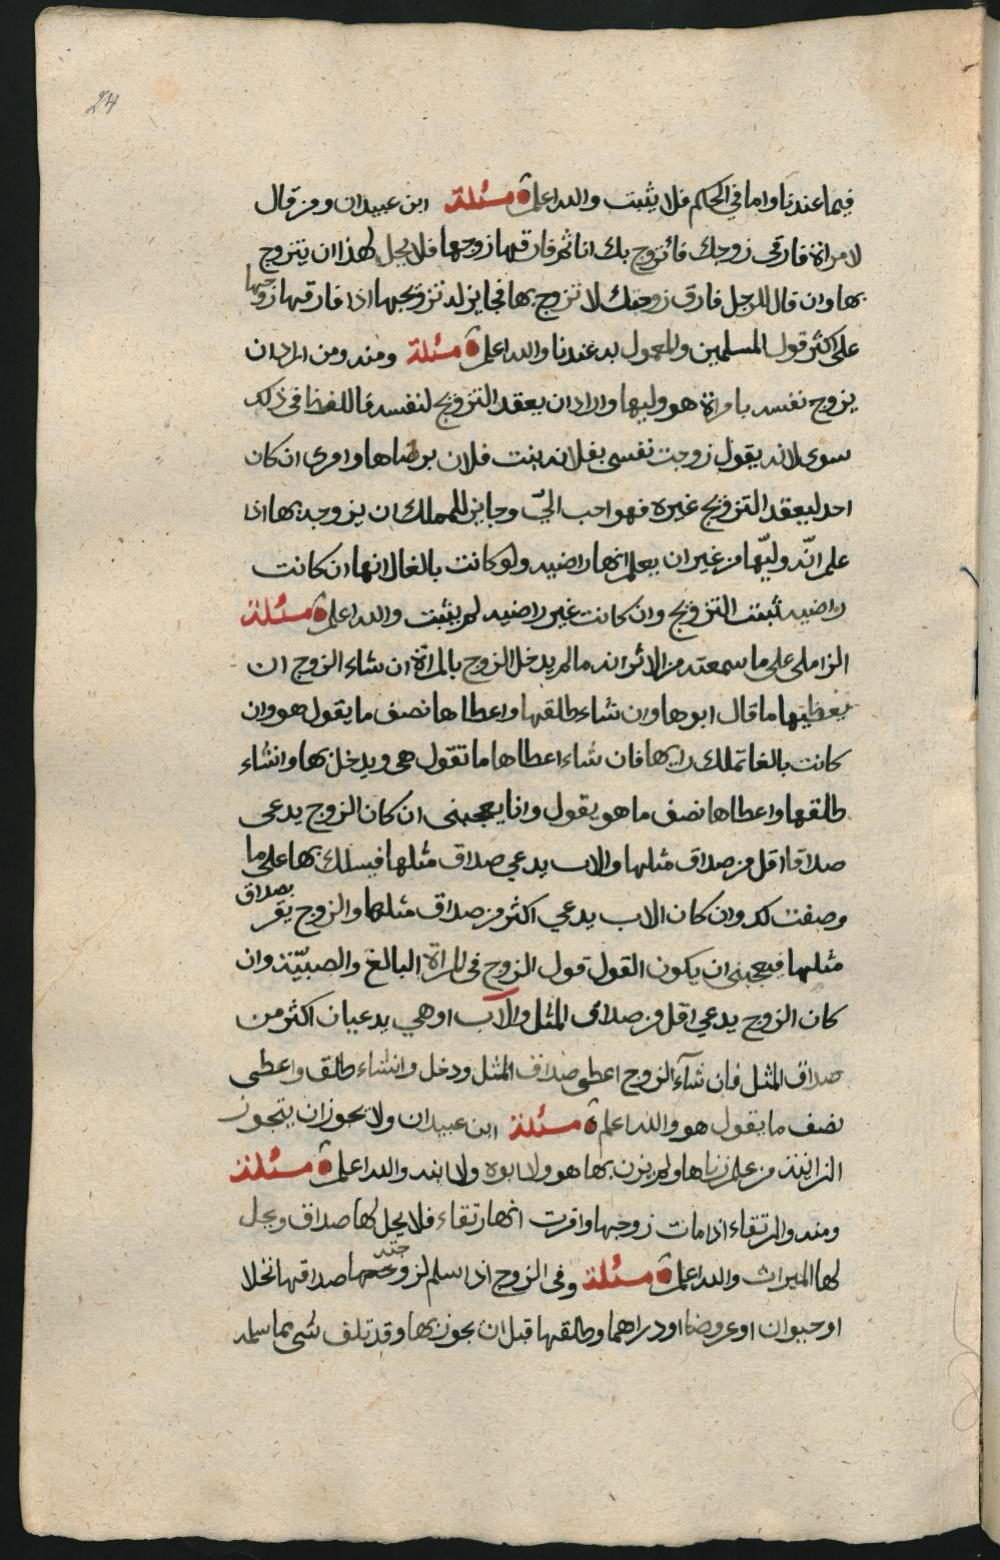 24
فيما عندنا واما في الحكم فلا يثبت والله اعلم مسئلة ابن عبيدان ومن قال
لامراة فارقي زوجك فاتزوج بك انا ثم فارقها زوجها فلا يحل لهذا ان يتزوج
بها وان قال للرجل فارق زوجتك لاتزوج بها فجايز له تزويجها اذا فارقها زوجها
على اكثر قول المسلمين والمعمول به عندنا والله اعلم مسئلة ومنه ومن اراد ان
يزوج نفسه بامراة هو وليها واراد ان يعقد التزويج لنفسه فاللفظ في ذلك
سوى لانه يقول زوجت نفسي بفلانه بنت فلان برضاها وامري ان كان
احد ليعقد التزويج غيره فهو احب اليّ وجايز للمملك ان يزوجه بها اذا
علم انّه وليّها من غير ان يعلم انها راضيه ولو كانت بالغا لانها ان كانت
راضيه ثبت التزويج وان كانت غير راضيه لم يثبت والله اعلم مسئلة
الزاملي على ما سمعته من الاثر انه ما لم يدخل الزوج بالمراة ان شاء الزوج ان
يعطيها ما قال ابوها وان شاء طلقها واعطاها نصف ما يقول هو وان
كانت بالغا تملك رايها فان شاء اعطاها ما تقول هي ويدخل بها وانشاء
طلقها واعطاها نصف ما هو يقول وانا يعجبنى ان كان الزوج يدعى
صداقا اقل من صداق مثلها والاب يدعي صداق مثلها فيسلك بها على ما
وصفت لك وان كان الاب يدعي اكثر من صداق مثلها والزوج يقر بصداق
مثلها فيعجبنى ان يكون القول قول الزوج فى المراة البالغ والصبيّة وان
كان الزوج يدعي اقل من صداق المثل والآب او هي يدعيان اكثر من
صداق المثل فان شآء الزوج اعطى صداق المثل ودخل وانشاء طلق واعطى
نصف ما يقول هو والله اعلم مسئلة ابن عبيدان ولا يجوز ان يتجوز
الزانية من علم زناها ولم يزن بها هو ولا ابوه ولا ابنه والله اعلم مسئلة
ومنه والرتقاء اذا مات زوجها واقرت انها رتقاء فلا يحل لها صداق ويحل
لها الميراث والله اعلم مسئلة وفى الزوج اذا سلم لزوجته صداقها نخلا
او حيوان او عروضا او دراهما وطلقها قبل ان يجوز بها وقد تلف شي مما سلمه